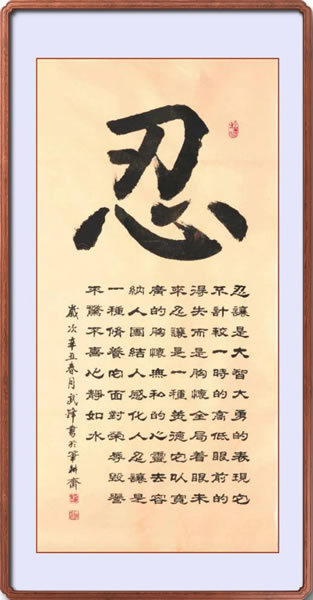 忍
忍讓是大智大勇的表現它
不計較一時的高低眼前的
得失而是胸懷全局着眼未
來忍讓是一種美德它以寬
廣的胸懷無私的心靈去容
納人團結人感化人忍讓是
一種修養它面對榮辱毀譽
不驚不喜心靜如水
歲次辛丑春月武鋒書於筆耕齋